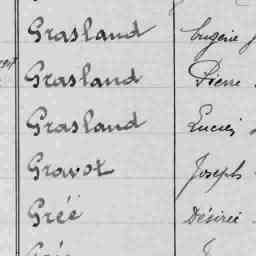 Grasland Eugène
Grasland Pierre
Grasland Lucien
Gravot Joseph
Gréé Désirée